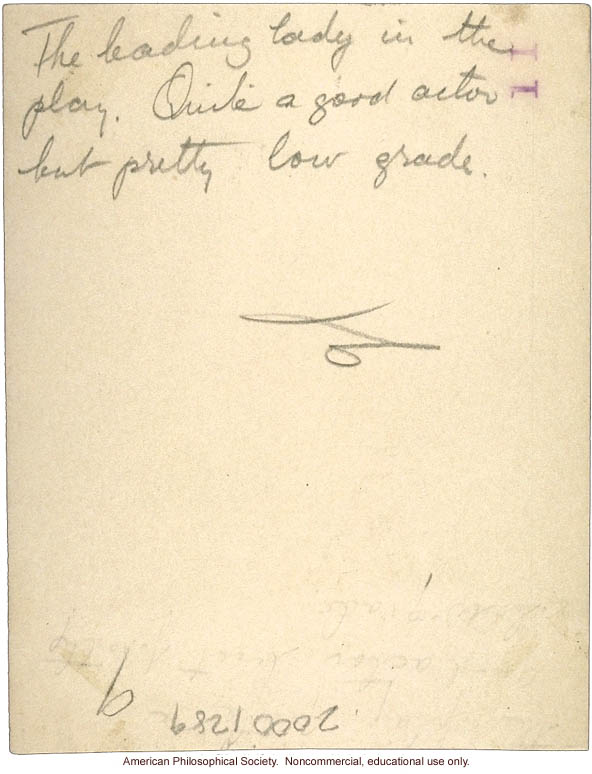 The leading lady in the
play. Quite a good actor
but pretty low grade.
11
6
20001289
American Philosophical Society. Noncommercial, educational use only.